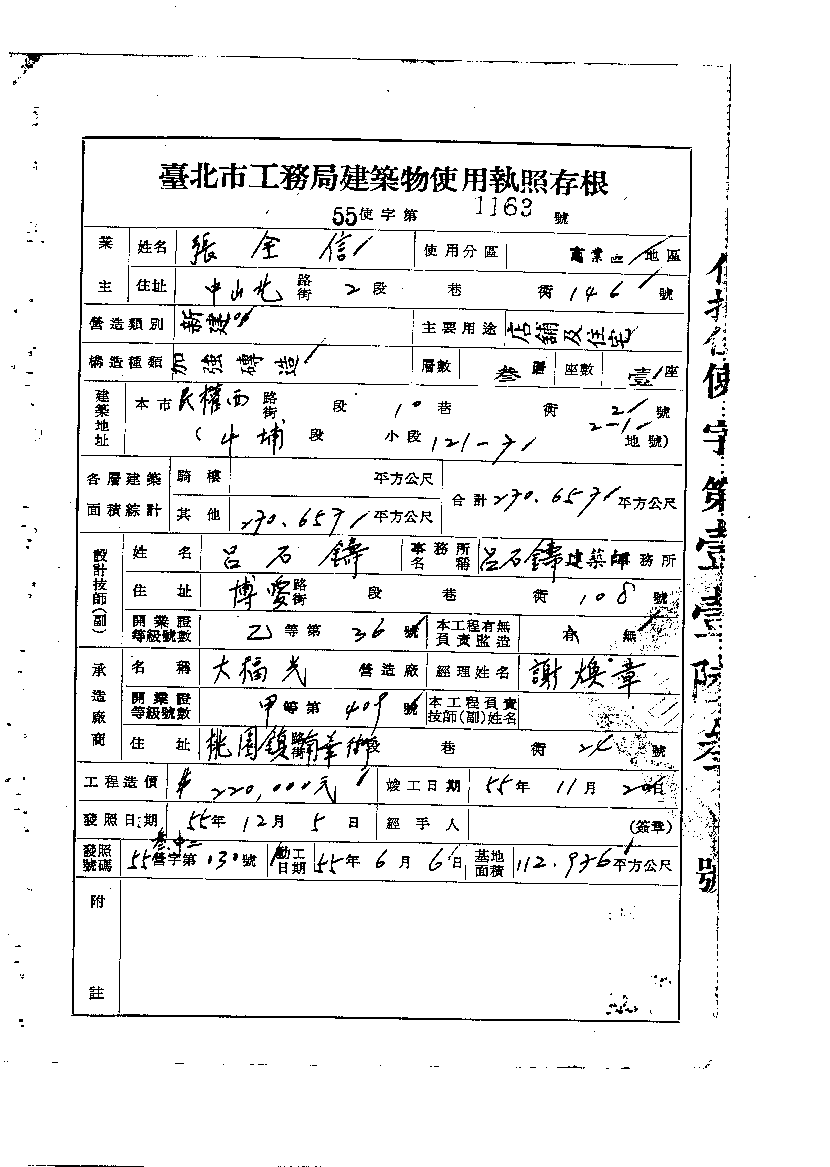 臺北市工務局建築物使用執照存根
55使字第 1163 號
業主 姓名 張全信 使用分區 商業區 地區
住址 中山北路街 2段 巷 街 146 號
營造類別 新建 主要用途 店舖及住宅
構造種類 加強磚造 層數 叁層 座數 壹座
建築地址 本市民權西路街 段 10巷 街 2 號
2-1
( 牛埔段 小段 121-7 地號)
各層建築面積綜計 騎樓 平方公尺 合計 270.657 平方公尺
其他 270.657 平方公尺
設計技師(副) 姓名 呂石鑄 事務所名稱 呂石鑄建築師務所
住址 博愛路街 段 巷 街 108 號
開業證等級號數 乙等第 36 號 本工程有無負責監造 有 無
承造廠商 名稱 大福光 營造廠 經理姓名 謝煥章
開業證等級號數 甲等第 409 號 本工程負責技師(副)姓名
住址 桃園鎮 華街 段 巷 街 24 號
工程造價 220,000元 竣工日期 55年 11月 20日
發照日期 55年 12月 5日 經手人 (簽章)
發照號碼 55營字第 030號 動工日期 55年 6月 6日 基地面積 112.976平方公尺
附註
使字第壹壹陸叁號